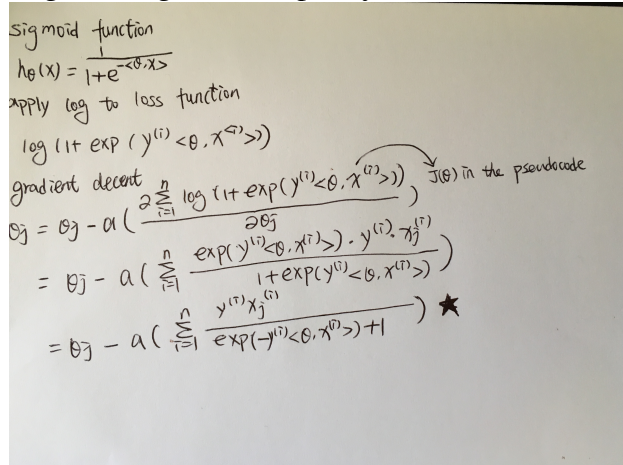 sigmoid function
hθ(x) = 1 / (1+e^(-<θ,x>))
apply log to loss function
log (1+ exp (y^(i) <θ, x^(i)>))
gradient decent
θj = θj - α ( ∂ Σ_{i=1}^{n} log (1+exp(y^(i)<θ, x^(i)>)) / ∂θj ) J(θ) in the pseudocode
= θj - α ( Σ_{i=1}^{n} exp(y^(i)<θ, x^(i)>) · y^(i) · xj^(i) / (1+exp(y^(i)<θ, x^(i)>)) )
= θj - α ( Σ_{i=1}^{n} y^(i) xj^(i) / (exp(-y^(i)<θ, x^(i)>)+1) ) ★